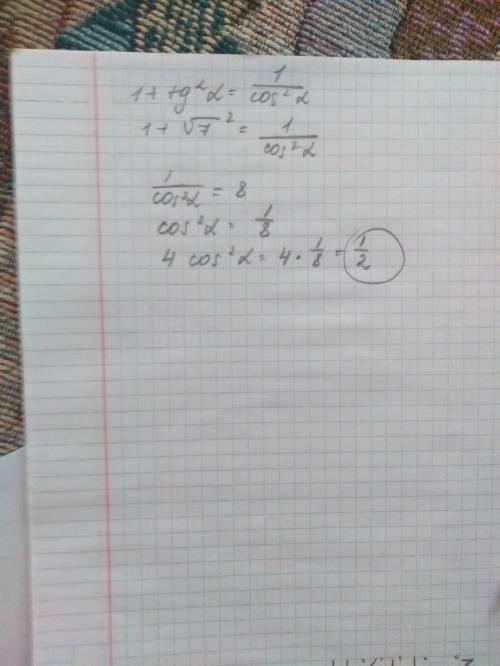 1 + tg²α = 1/cos²α
1 + √7² = 1/cos²α
1/cos²α = 8
cos²α = 1/8
4 cos²α = 4 · 1/8 = 1/2